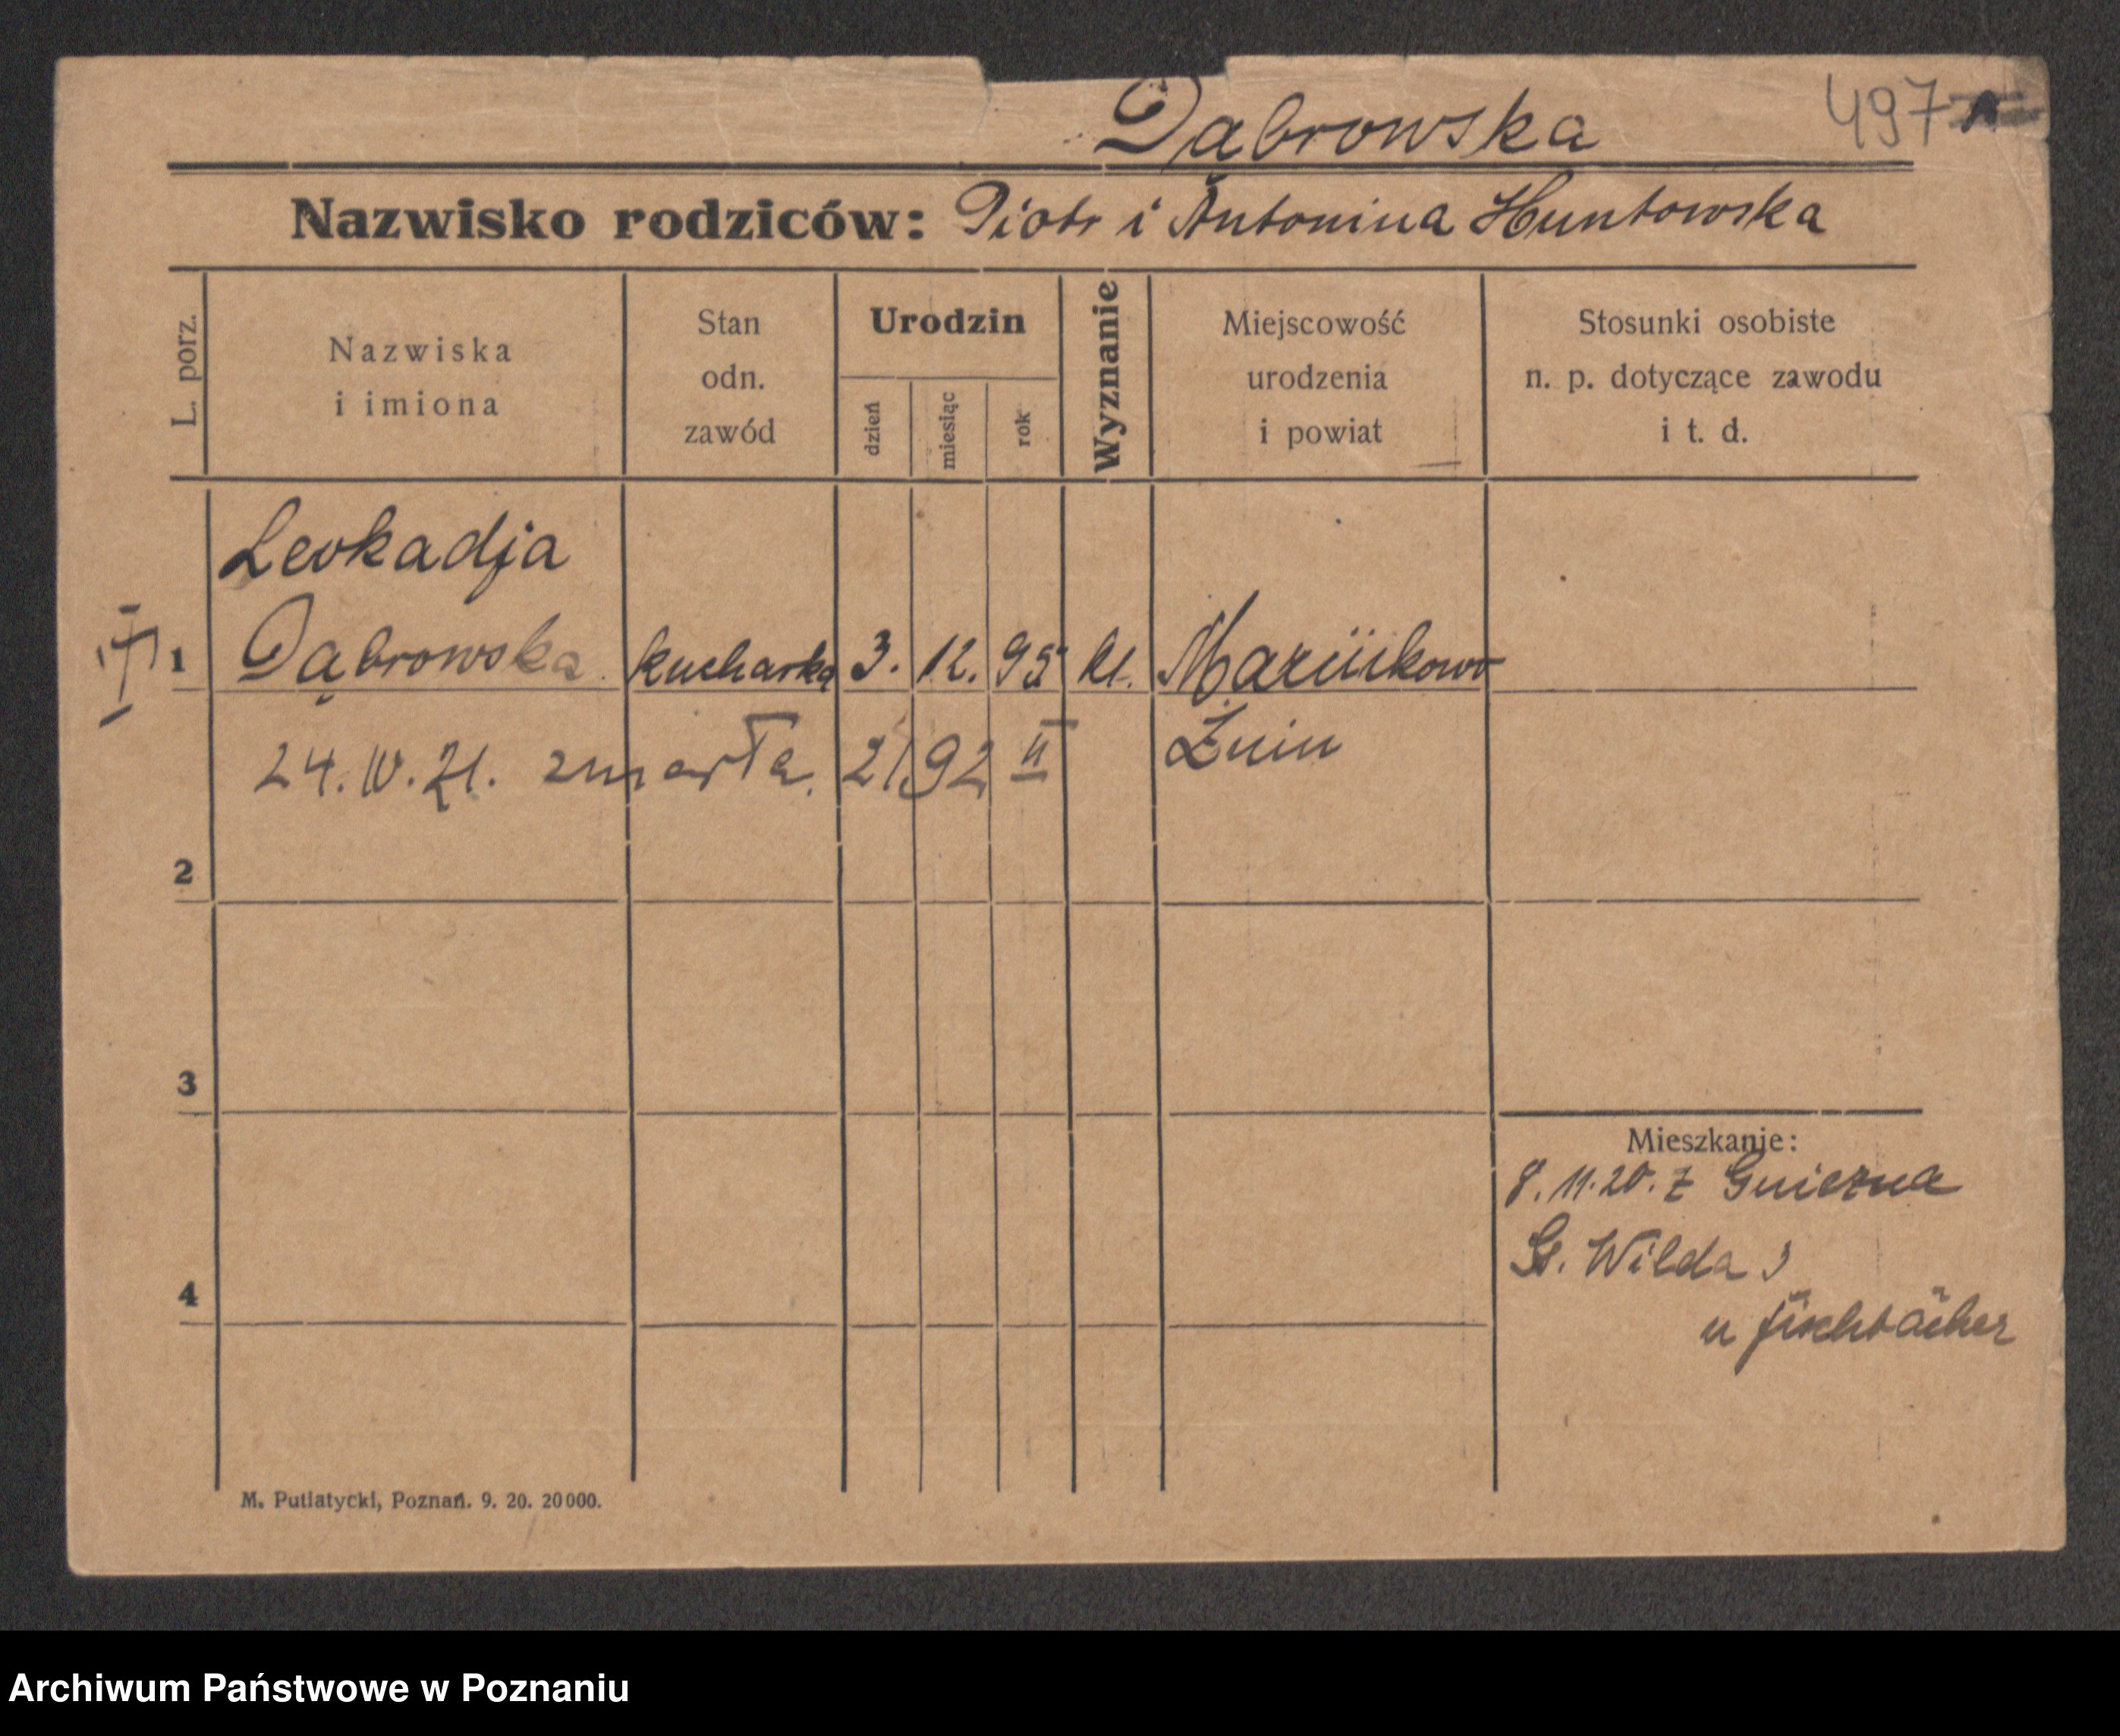 Dąbrowska 497
Nazwisko rodziców: Piotr i Antonina Huntowska
L. porz.
Nazwiska
i imiona
Stan
odn.
zawód
Urodzin
dzień
miesiąc
rok
Wyznanie
Miejscowość
urodzenia
i powiat
Stosunki osobiste
n. p. dotyczące zawodu
i t. d.
Leokadja
1 Dąbrowska kucharka 3. 12. 95 kt.
24. IV. 21. zmarła. 21 92 II Żnin
2
3
Mieszkanie:
8. 11. 20. z Gniezna
G. Wilda 3
4
u
M. Putiatycki, Poznań. 9. 20. 20000.
Archiwum Państwowe w Poznaniu